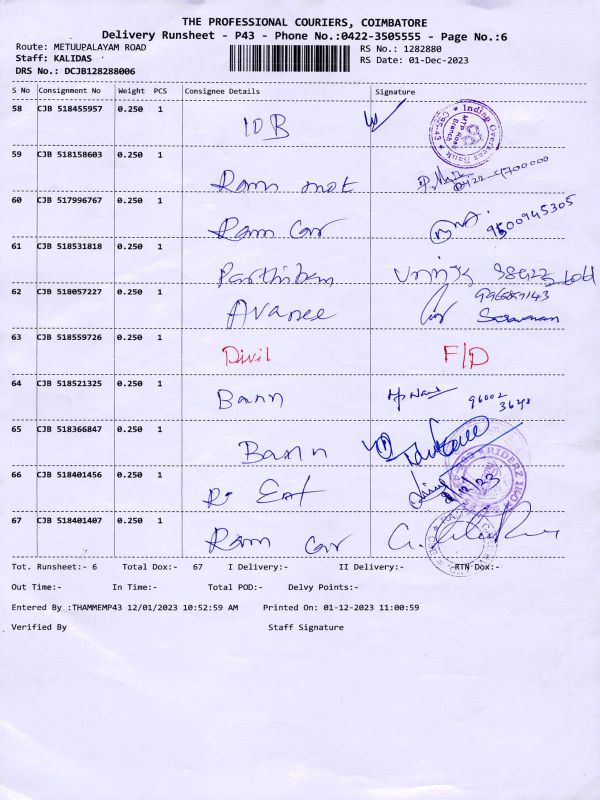 THE PROFESSIONAL COURIERS, COIMBATORE
Delivery Runsheet - P43 - Phone No.:0422-3505555 - Page No.:6
Route: METUUPALAYAM ROAD
RS No.: 1282880
Staff: KALIDAS
RS Date: 01-Dec-2023
DRS No.: DCJB128288006
S No Consignment No Weight PCS Consignee Details Signature
58 CJB 518455957 0.250 1 IOB
59 CJB 518158603 0.250 1 Ram mot
60 CJB 517996767 0.250 1 Ram Car 9500945305
61 CJB 518531818 0.250 1 Parthiban
62 CJB 518057227 0.250 1 Avanee Saravanan
63 CJB 518559726 0.250 1 Divil F/D
64 CJB 518521325 0.250 1 Bann 96002
65 CJB 518366847 0.250 1 Bann
66 CJB 518401456 0.250 1 R Eat
67 CJB 518401407 0.250 1 Ram Car
Tot. Runsheet:- 6 Total Dox:- 67 I Delivery:- II Delivery:- RTN Dox:-
Out Time:- In Time:- Total POD:- Delvy Points:-
Entered By :THAMMEMP43 12/01/2023 10:52:59 AM Printed On: 01-12-2023 11:00:59
Verified By Staff Signature